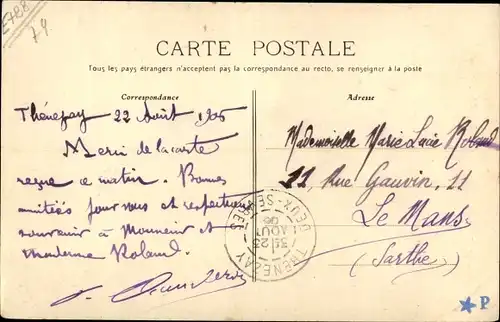 2788
74
CARTE POSTALE
Tous les pays étrangers n'acceptent pas la correspondance au recto, se renseigner à la poste
Correspondance
Thénezay 22 Août 1906
Merci de la carte
reçue ce matin. Bonnes
amitiés pour vous et respectueux
souvenir à Monsieur et
Madame Roland.
Adresse
Mademoiselle Marie Lucie Roland
11 Rue Gauvin, 11
Le Mans
(Sarthe)
THENEZAY
DEUX-SEVRES
23
AOUT
06
P